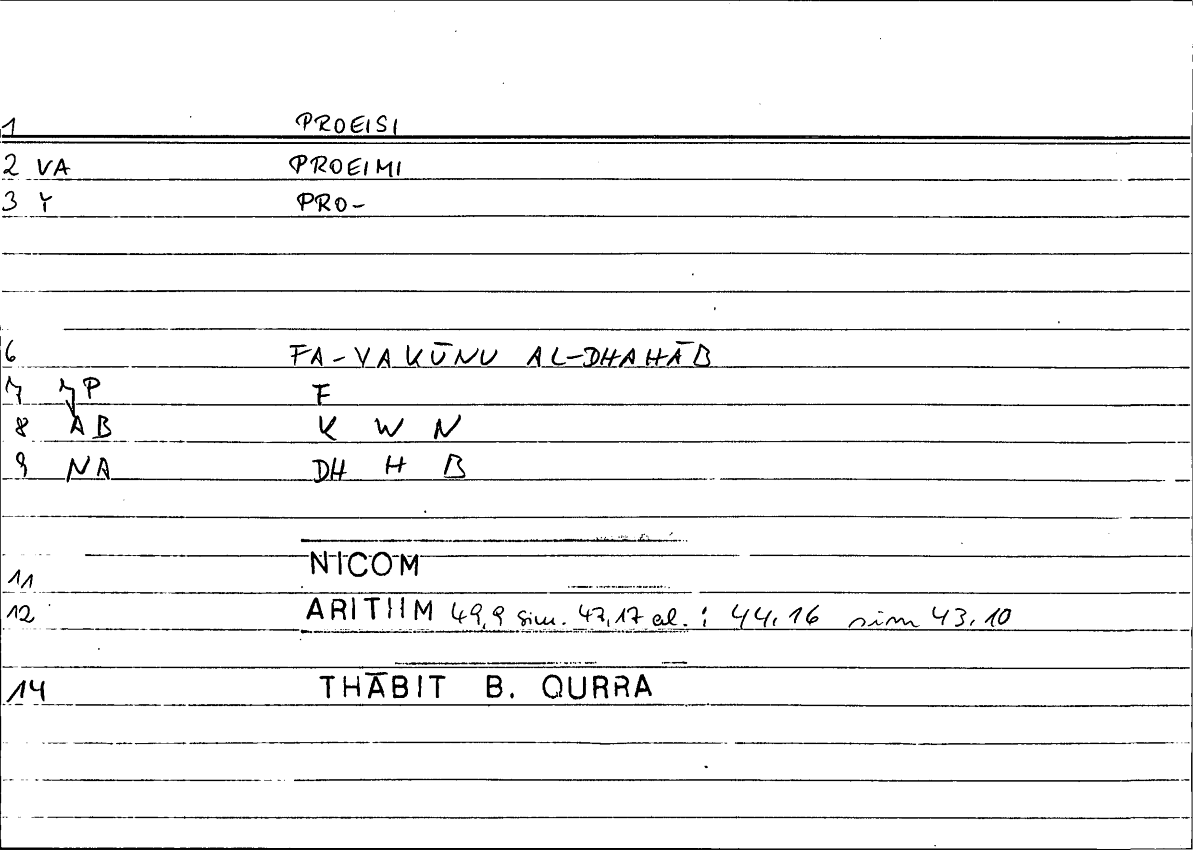 1 PROEISI
2 VA PROEIMI
3 Y PRO-
6 FA-YAKŪNU AL-DHAHĀB
7 7P F
8 AB K W N
9 NA DH H B
11 NICOM
12 ARITHM 49,9 sim. 47,17 al. : 44,16 sim 43,10
14 THĀBIT B. QURRA